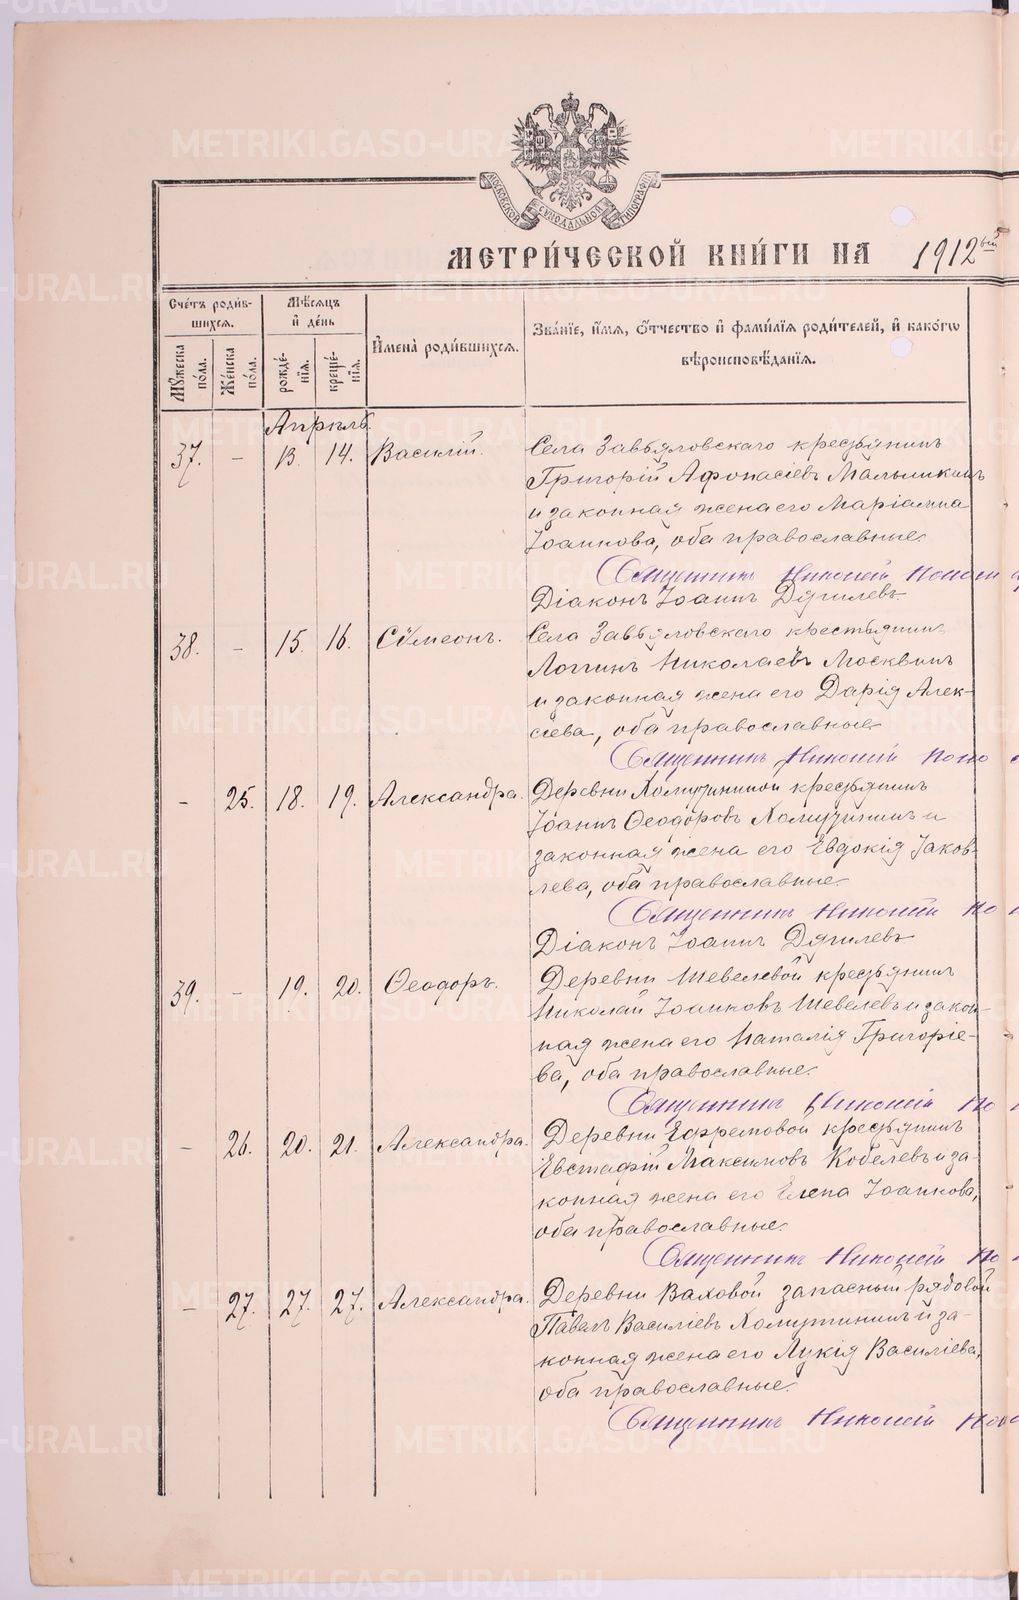 МОСКОВСКОЙ СУНОДАЛЬНОЙ ТИПОГРАФІИ
МЕТРИ́ЧЕСКОЙ КНИ́ГИ НА 1912ый
Сче́тъ роди́в-
шихся.
Му́жеска по́ла.
Же́нска по́ла.
Мѣ́сяцъ
и҆ де́нь
рожде́-
нїѧ.
креще́-
нїѧ.
И҆мена̀ роди́вшихсѧ.
Зва́нїе, и҆́мѧ, ѻ҆́тчество и҆ фами́лїѧ роди́телей, и҆ како́гѡ
вѣроисповѣ́данїѧ.
Апрѣль.
37. – 13. 14. Василій. Села Завьяловскаго крестьянинъ
Григорій Афонасіевъ Мальишкинъ
и законная жена его Маріамна
Іоаннова, оба православные.
Священникъ Николай
Діаконъ Іоаннъ Дягилевъ
38. – 15. 16. Сѵмеонъ. Села Завьяловскаго крестьянинъ
Логгинъ Николаевъ Москвинъ
и законная жена его Дарія Алек-
сіева, оба православные
Священникъ Николай
– 25. 18. 19. Александра. Деревни Хомутининой крестьянинъ
Іоаннъ Ѳеодоровъ Хомутининъ и
законная жена его Евдокія Іаков-
лева, оба православные.
Священникъ Николай
Діаконъ Іоаннъ Дягилевъ
39. – 19. 20. Ѳеодоръ. Деревни Шевелевой крестьянинъ
Николай Іоанновъ Шевелевъ и закон-
ная жена его Наталія Григоріе-
ва, оба православные.
Священникъ Николай
– 26. 20. 21. Александра. Деревни Ефремовой крестьянинъ
Евстафій Максимовъ Кобелевъ и за-
конная жена его Елена Іоаннова,
оба православные.
Священникъ Николай
– 27. 27. 27. Александра. Деревни Ваховой запасный рядовой
Павелъ Василіевъ Хомутининъ и за-
конная жена его Лукія Василіева,
оба православные.
Священникъ Николай
METRIKI.GASO-URAL.RU